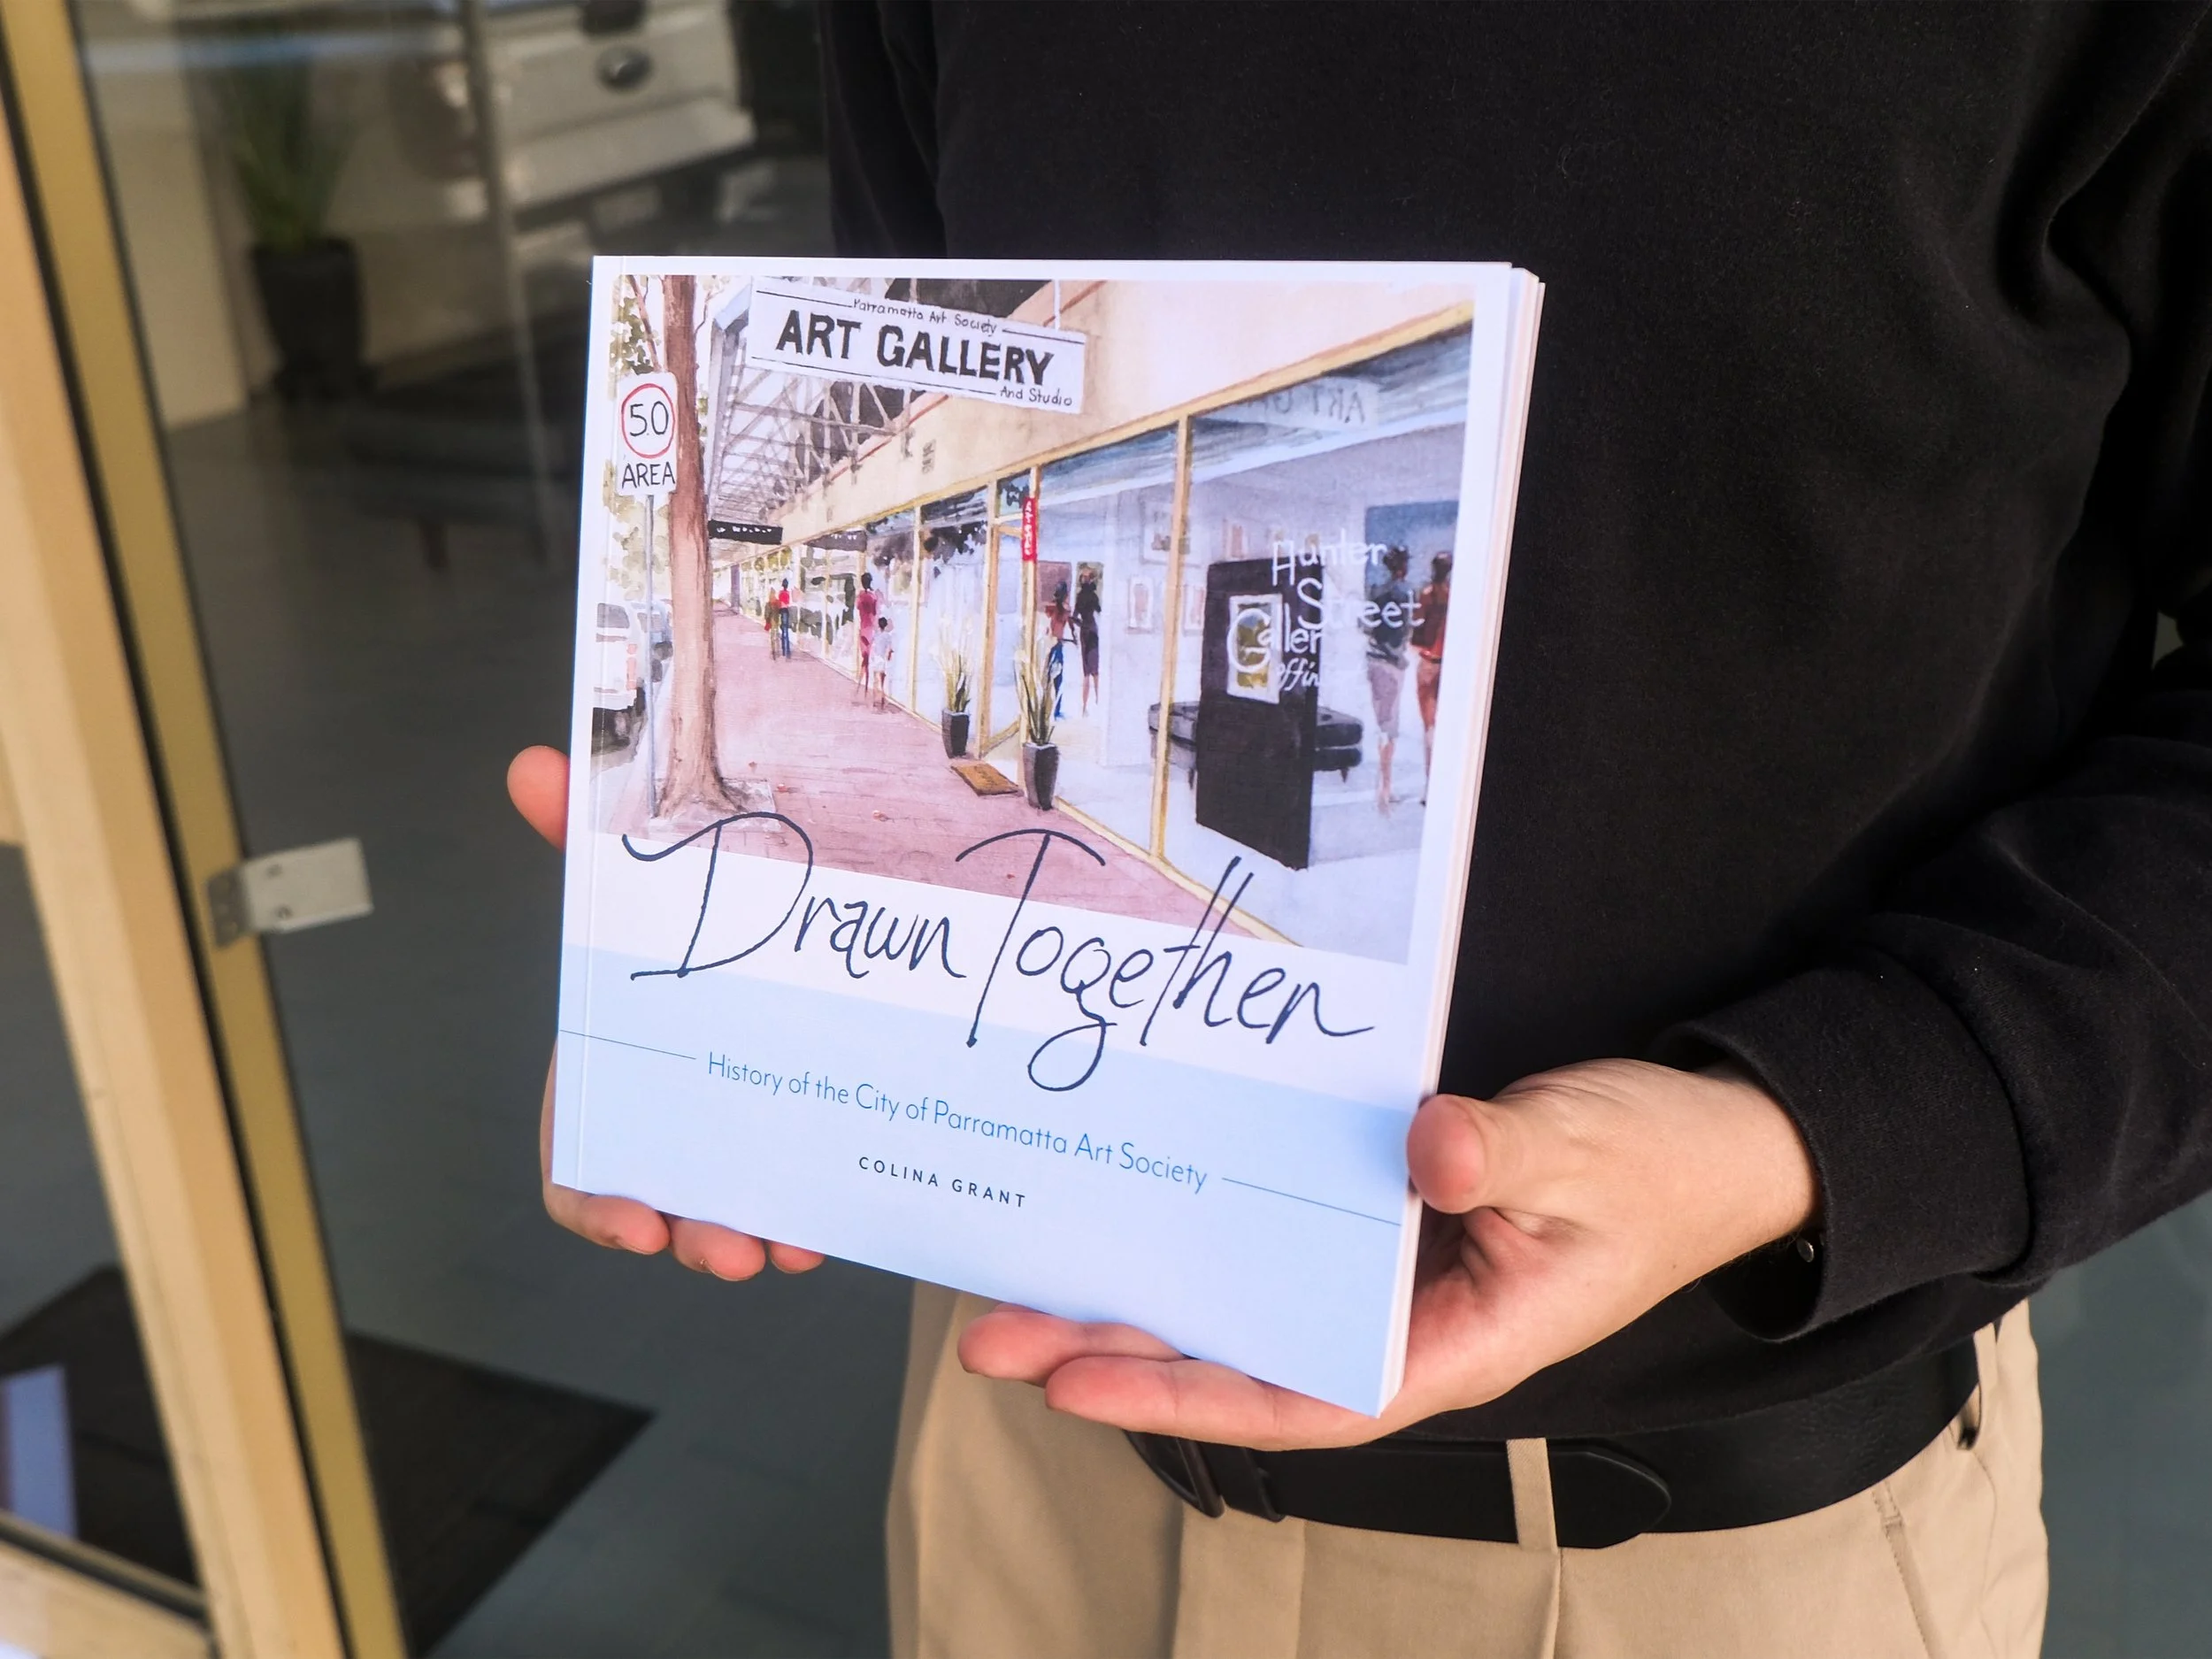 Parramatta Art Society
ART GALLERY
And Studio
50
AREA
Hunter
Street
Drawn Together
History of the City of Parramatta Art Society
COLINA GRANT